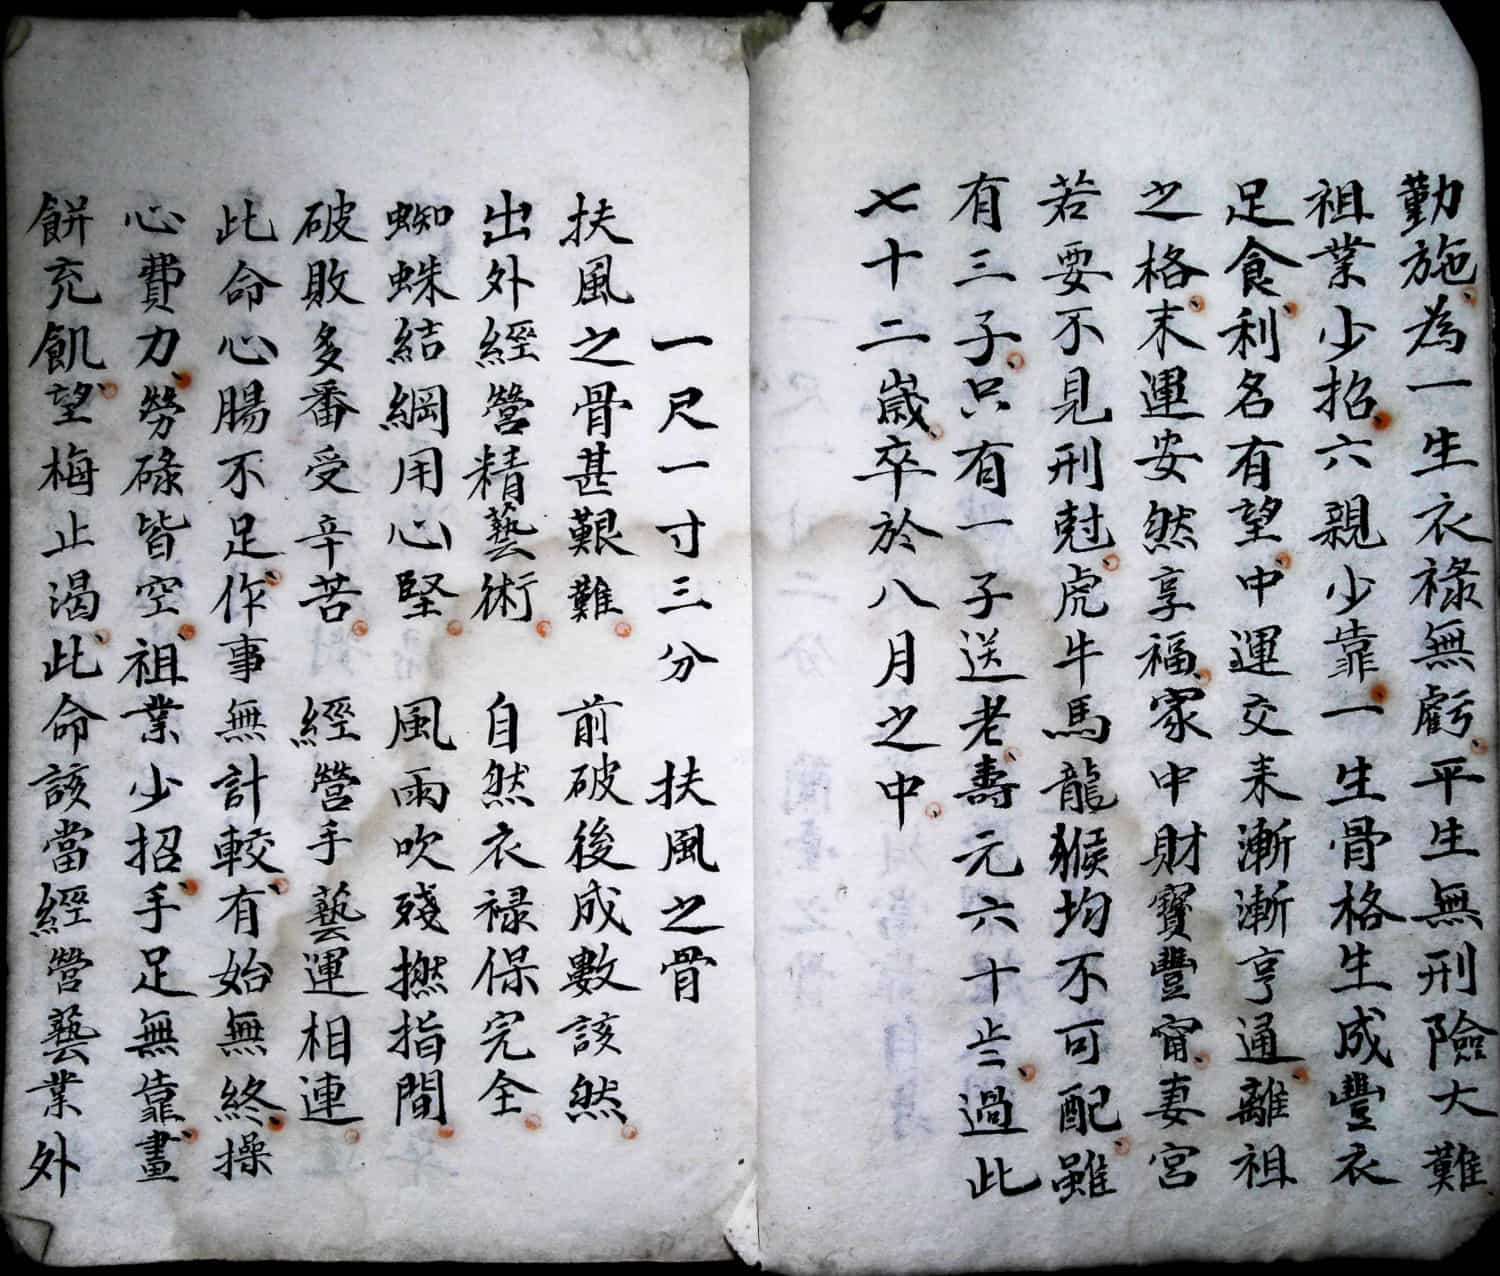 勤施為一生衣祿無虧平生無刑險大難
祖業少招六親少靠一生骨格生成豐衣
足食利名有望中運交來漸漸亨通離祖
之格末運安然享福家中財寶豐甯妻宮
若要不見刑尅虎牛馬龍猴均不可配雖
有三子只有一子送老壽元六十歲過此
七十二歲卒於八月之中
一尺一寸三分 扶風之骨
扶風之骨甚艱難 前破後成數該然
出外經營精藝術 自然衣祿保完全
蜘蛛結綱用心堅 風雨吹殘撚指間
破敗多番受辛苦 經營手藝運相連
此命心腸不足作事無計較有始無終操
心費力勞碌皆空祖業少招手足無靠畫
餅充飢望梅止渴此命該當經營藝業外